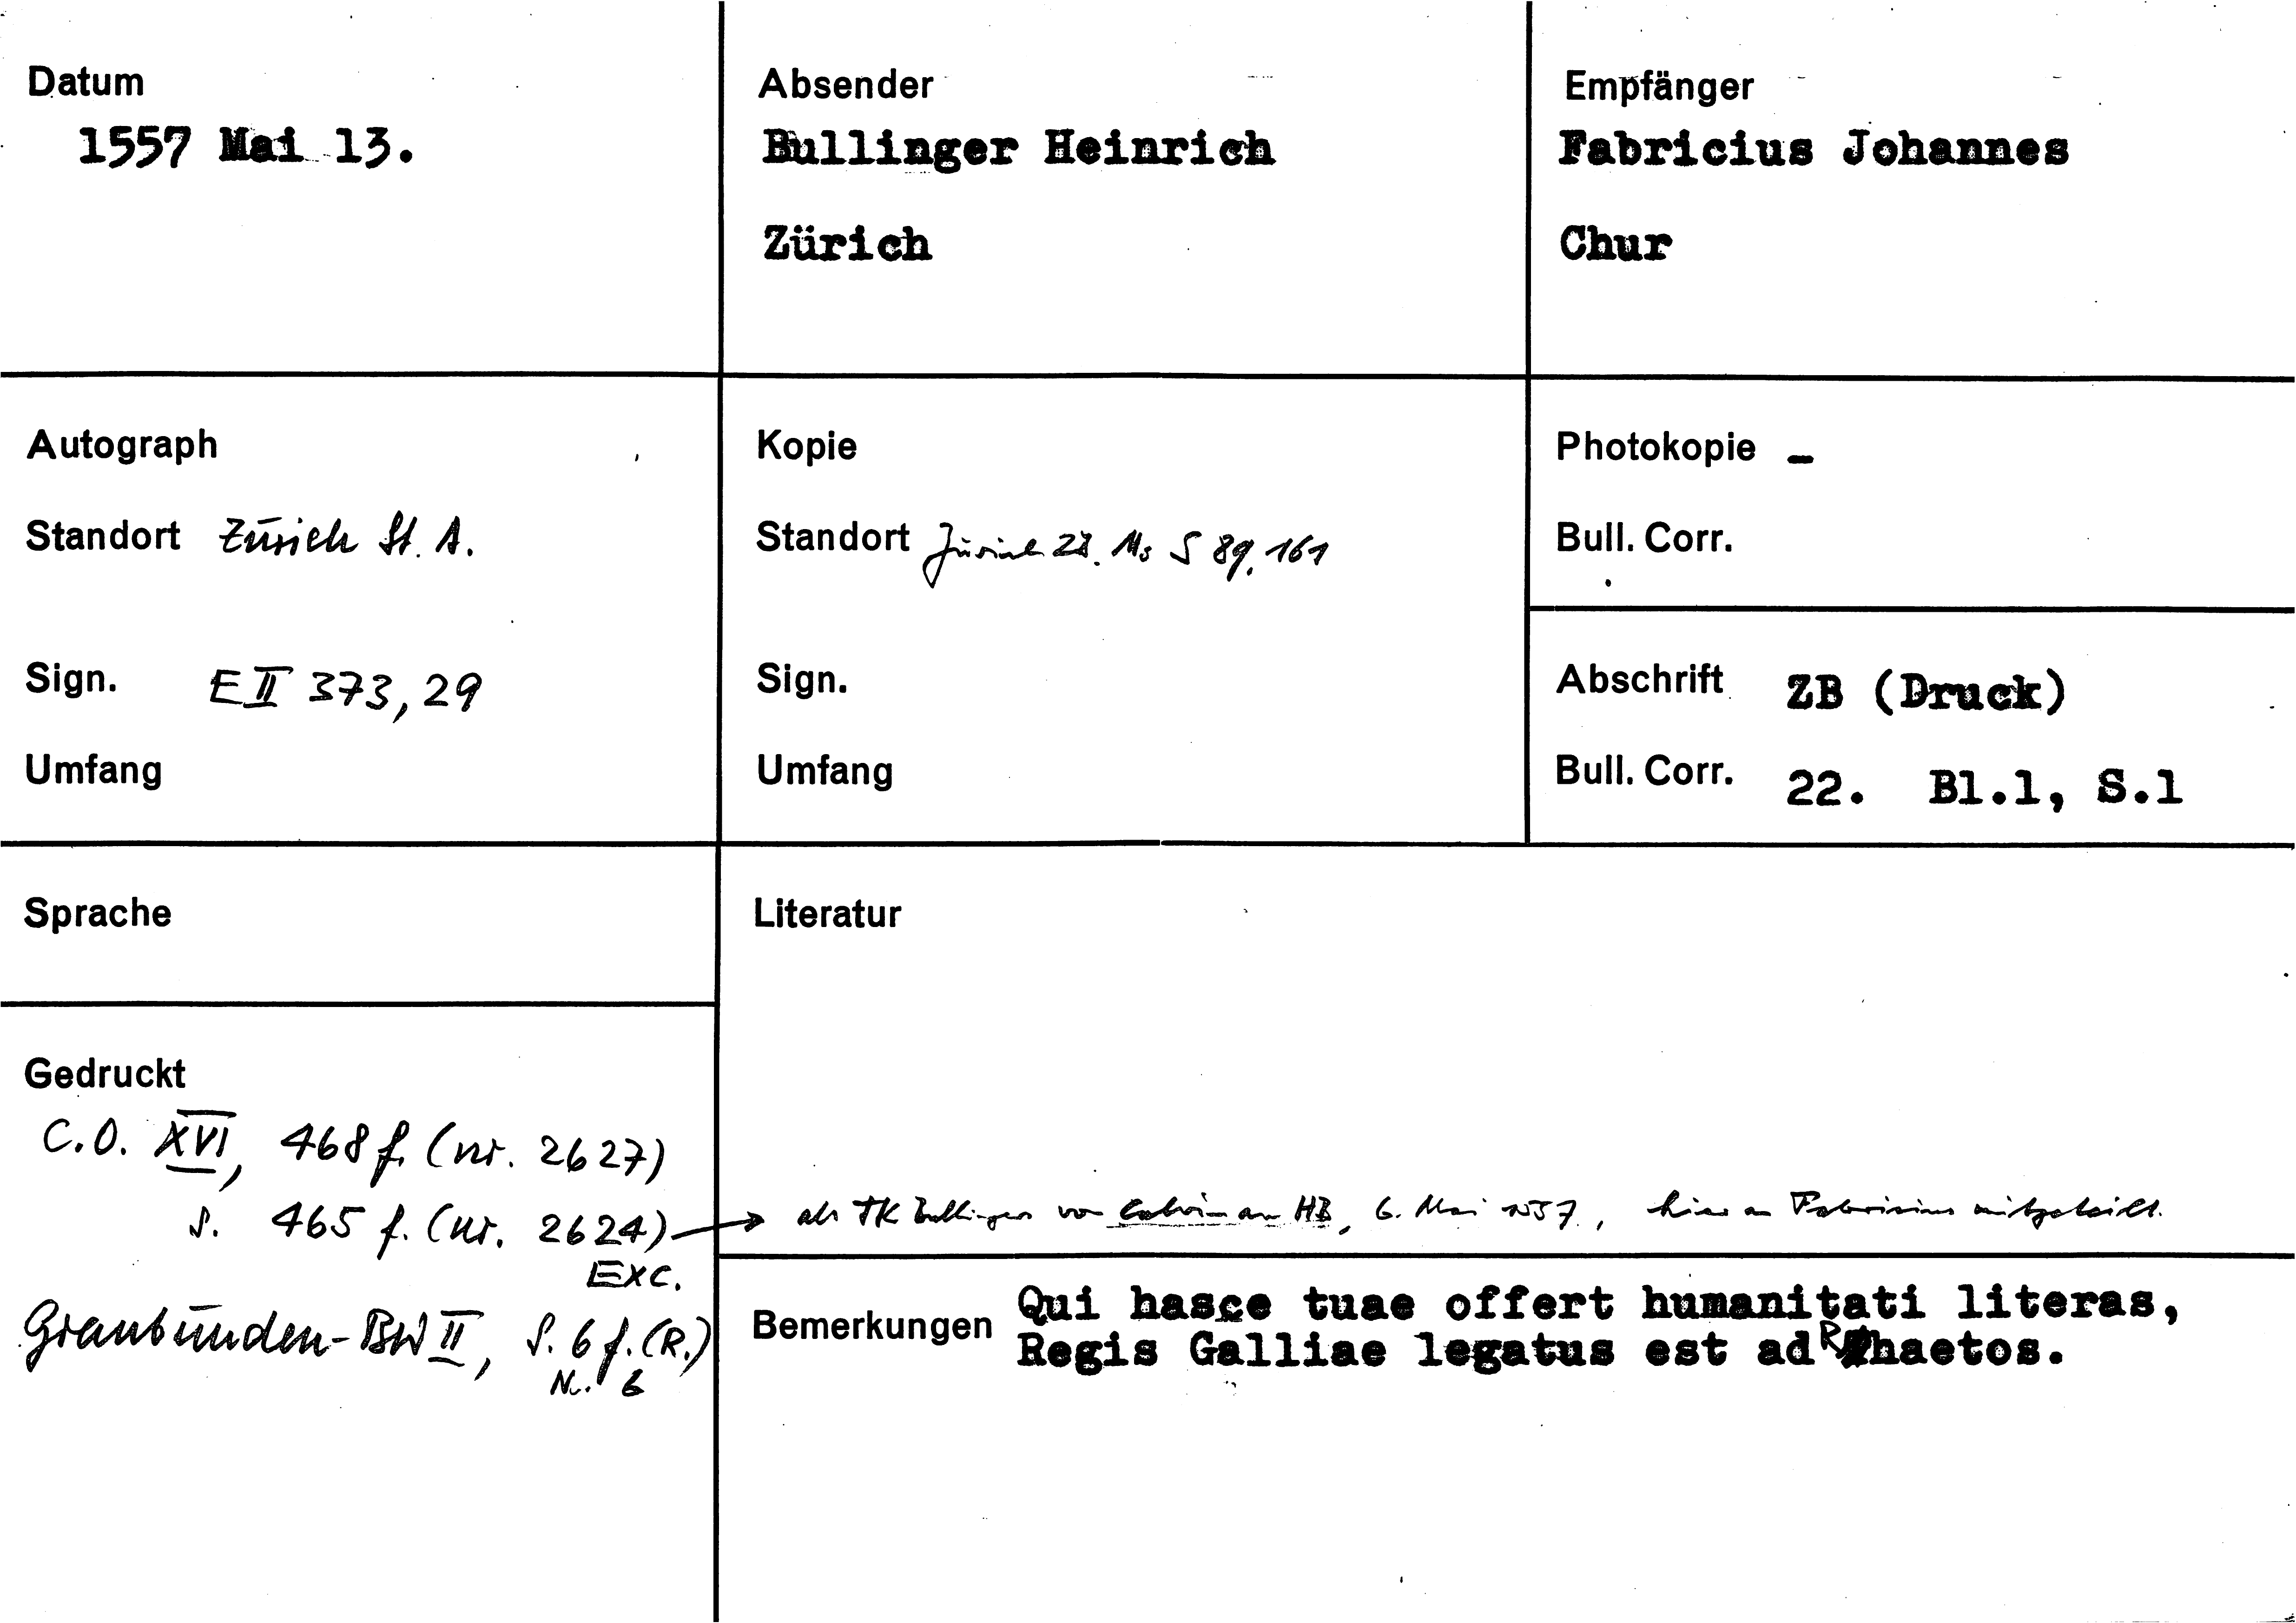 Datum
1557 Mai 13.
Absender
Bullinger Heinrich
Zürich
Empfänger
Fabricius Johannes
Chur
Autograph
Standort Zürich St. A.
Sign. E II 373, 29
Umfang
Kopie
Standort Zürich ZB. Ms S 89, 161
Sign.
Umfang
Photokopie -
Bull. Corr.
Abschrift ZB (Druck)
Bull. Corr. 22. Bl.1, S.1
Sprache
Gedruckt
C.O. XVI, 468 f. (nr. 2627)
S. 465 f. (nr. 2624)
Exc.
Graubünden-BW II, S. 6 f. (R.)
Nr. 6
Literatur
als TK Bullingers von Calvin an HB, 6. Mai 1557, hier an Fabricius mitgeteilt.
Bemerkungen Qui hasce tuae offert humanitati literas,
Regis Galliae legatus est ad Rhaetos.